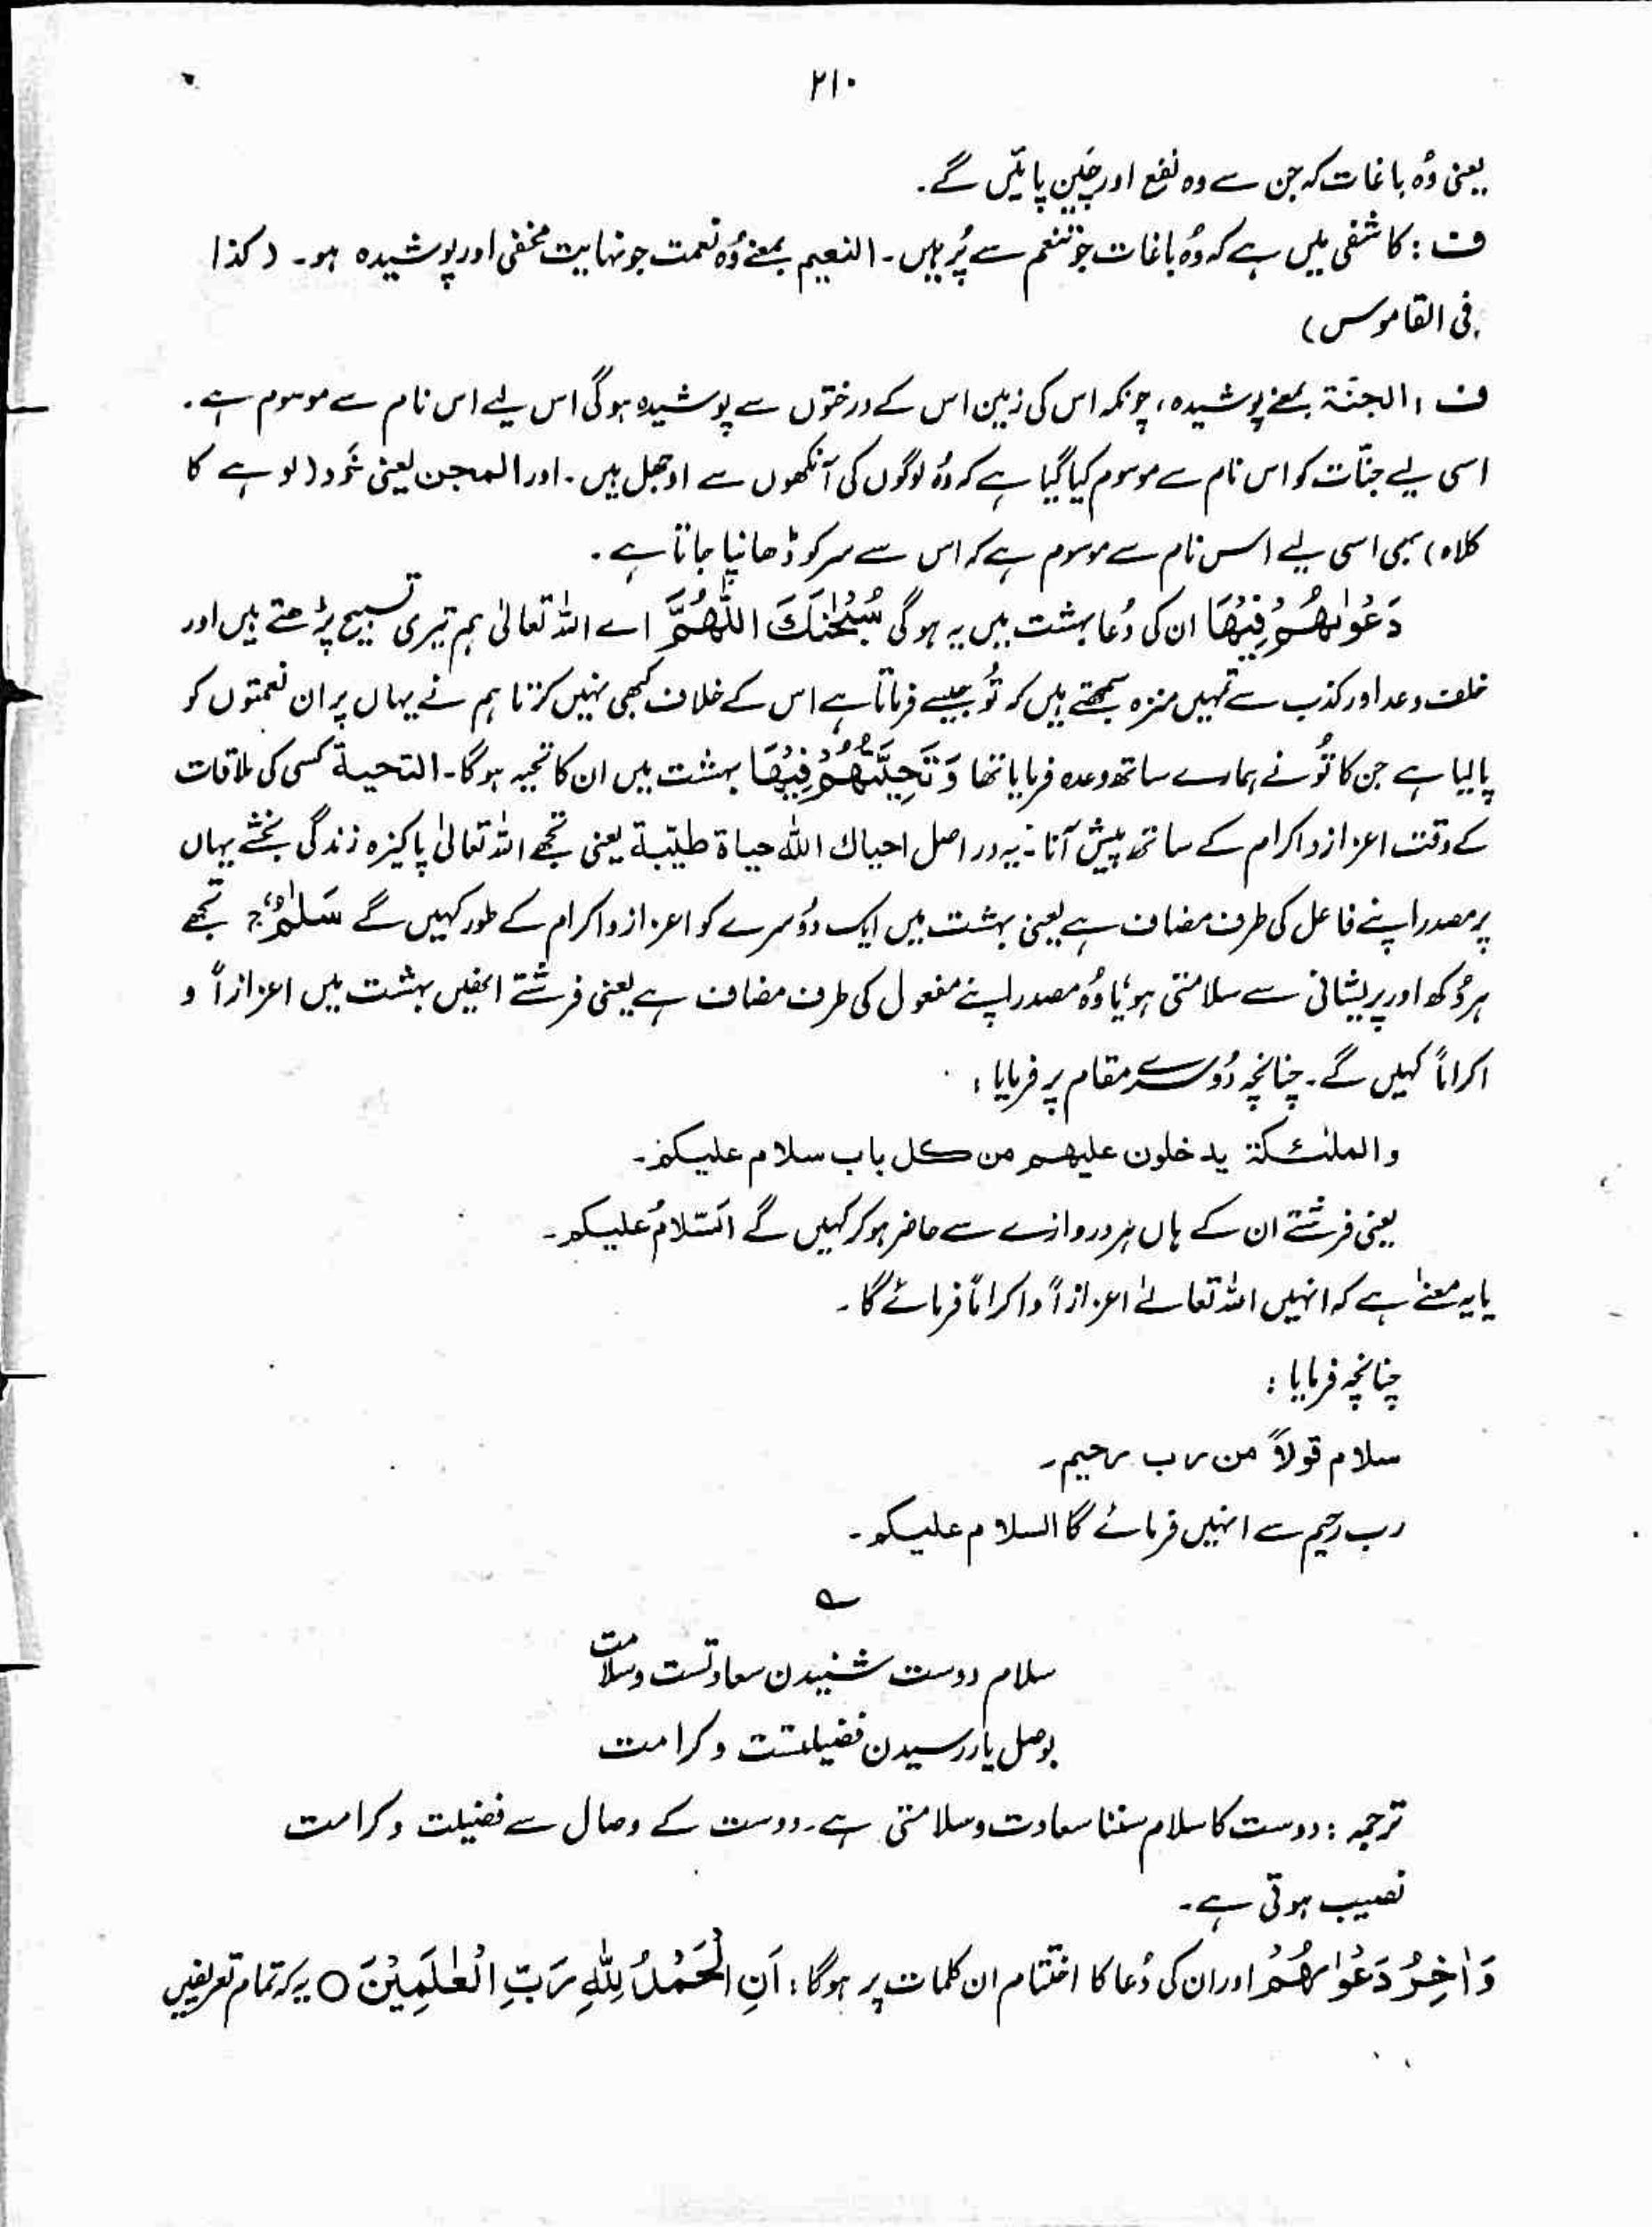 ۲۱۰
یعنی وُہ باغات کہ جن سے وہ نفع اور چَین پائیں گے۔
ف : کاشفی میں ہے کہ وُہ باغات جو تنعم سے پُر ہیں۔ النعیم بمعنے وُہ نعمت جو نہایت مخفی اور پوشیدہ ہو۔ (کذا
فی القاموس)
ف : الجنّۃ بمعنے پوشیدہ، چونکہ اس کی زمین اس کے درختوں سے پوشیدہ ہوگی اس لیے اس نام سے موسوم ہے۔
اسی لیے جنّات کو اس نام سے موسوم کیا گیا ہے کہ وُہ لوگوں کی آنکھوں سے اوجھل ہیں۔ اور المجن یعنی خَود (لوہے کا
کلاہ) بھی اسی لیے اس نام سے موسوم ہے کہ اس سے سر کو ڈھانپا جاتا ہے۔
دَعْوٰىھُمْ فِیْھَا ان کی دُعا بہشت میں یہ ہوگی سُبْحٰنَكَ اللّٰھُمَّ اے اللہ تعالیٰ ہم تیری تسبیح پڑھتے ہیں اور
خلف وعد اور کذب سے تمہیں منزہ سمجھتے ہیں کہ تُو جیسے فرماتا ہے اس کے خلاف کبھی نہیں کرتا ہم نے یہاں پر ان نعمتوں کو
پا لیا ہے جن کا تُو نے ہمارے ساتھ وعدہ فرمایا تھا وَ تَحِیَّتُھُمْ فِیْھَا بہشت میں ان کا تحیہ ہوگا۔ التحیة کسی کی ملاقات
کے وقت اعزاز و اکرام کے ساتھ پیش آنا۔ یہ در اصل احیاك اللّٰه حیاة طیّبة یعنی تجھے اللہ تعالیٰ پاکیزہ زندگی بخشے یہاں
پر مصدر اپنے فاعل کی طرف مضاف ہے یعنی بہشت میں ایک دُوسرے کو اعزاز و اکرام کے طور کہیں گے سَلٰمٌ ۚ تجھے
ہر دُکھ اور پریشانی سے سلامتی ہو، یا وُہ مصدر اپنے مفعول کی طرف مضاف ہے یعنی فرشتے انھیں بہشت میں اعزازاً و
اکراماً کہیں گے۔ چنانچہ دُوسرے مقام پر فرمایا :
والملٰئکۃ یدخلون علیھم من کل باب سلام علیکم۔
یعنی فرشتے ان کے ہاں ہر دروازے سے حاضر ہو کر کہیں گے السّلامُ علیکم۔
یا یہ معنےٰ ہے کہ انہیں اللہ تعالےٰ اعزازاً و اکراماً فرمائے گا۔
چنانچہ فرمایا :
سلام قولاً من رب رحیم۔
رب رحیم سے انہیں فرمائے گا السلام علیکم۔
؎
سلام دوست شنیدن سعادتست و سلامت
بوصل یار رسیدن فضیلتست و کرامت
ترجمہ : دوست کا سلام سننا سعادت و سلامتی ہے۔ دوست کے وصال سے فضیلت و کرامت
نصیب ہوتی ہے۔
وَ اٰخِرُ دَعْوٰىھُمْ اور ان کی دُعا کا اختتام ان کلمات پر ہوگا : اَنِ الْحَمْدُ لِلّٰہِ رَبِّ الْعٰلَمِیْنَ ○ یہ کہ تمام تعریفیں